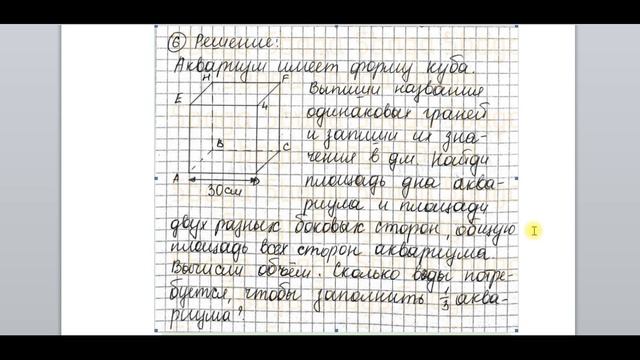 ⑥ Решение:
Аквариум имеет форму куба.
H F
E 4
B C
A D
30см
Выпиши названия
одинаковых граней
и запиши их зна-
чения в дм. Найди
площадь дна аква-
риума и площади
двух разных боковых сторон, общую
площадь всех сторон аквариума.
Вычисли объём. Сколько воды потре-
буется, чтобы заполнить 1/3 аква-
риума?